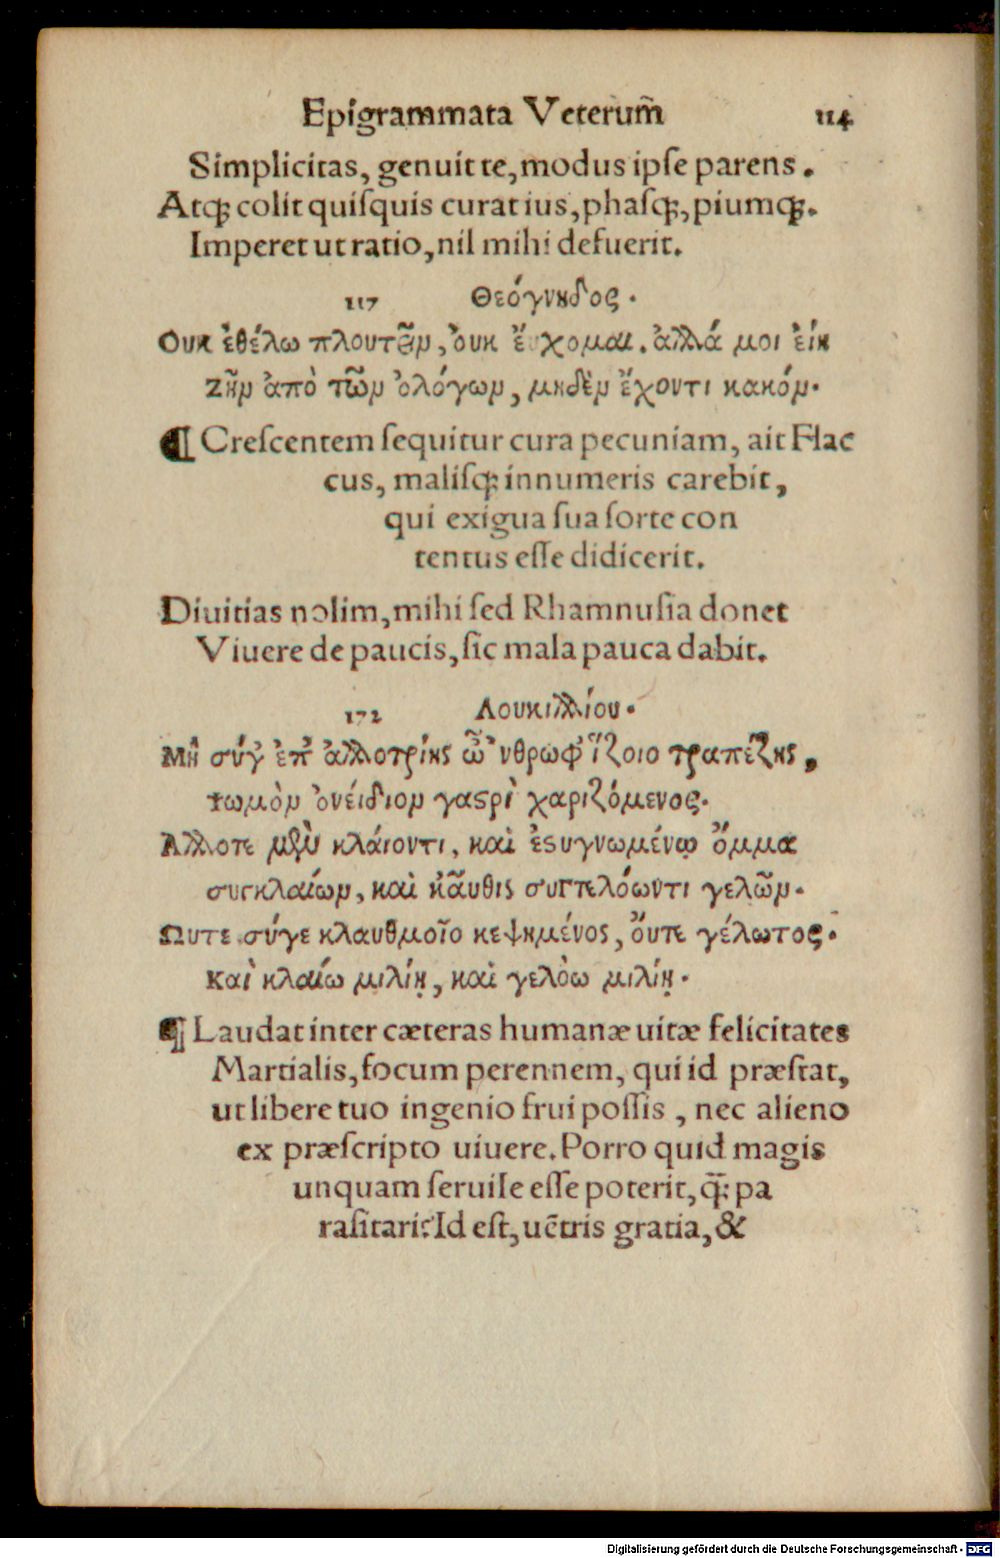 Epigrammata Veterum̃ 114
Simplicitas, genuit te, modus ipſe parens.
Atq; colit quiſquis curat ius, phaſq;, piumq;.
Imperet ut ratio, nil mihi defuerit.
117 Θεόγνιδος.
Ουκ ἐθέλω πλουτεῖν, ὀυκ ἔυχομαι. ἀλλά μοι ἐίη
Ζῆν ἀπὸ τῶν ὀλόγων, μηδὲν ἔχοντι κακόν.
¶ Creſcentem ſequitur cura pecuniam, ait Flac
cus, maliſq; innumeris carebit,
qui exigua ſua ſorte con
tentus eſſe didicerit.
Diuitias nolim, mihi ſed Rhamnuſia donet
Viuere de paucis, ſic mala pauca dabit.
172 Λουκιλλίου.
Μὴ σύγ' ἐπ' ἀλλοτρίης ὦ 'νθρωφ' ἵζοιο τραπέζης,
τωμὸν ὀνέιδιον γαςρὶ χαριζόμενος.
Αλλοτε μὲν κλάιοντι, καὶ ἐςυγνωμένῳ ὄμμα
συγκλαίων, καὶ κᾶυθις συγγελόωντι γελῶν.
Ωυτε σύγε κλαυθμοῖο κεψημένος, ὄυτε γέλωτος.
Καὶ κλαίω μιλίῃ, καὶ γελὸω μιλίῃ.
¶ Laudat inter cæteras humanæ uitæ felicitates
Martialis, focum perennem, qui id præſtat,
ut libere tuo ingenio frui poſſis, nec alieno
ex præſcripto uiuere. Porro quid magis
unquam ſeruile eſſe poterit, q̃; pa
raſitari? Id eſt, uẽtris gratia, &
Digitalisierung gefördert durch die Deutsche Forschungsgemeinschaft - DFG